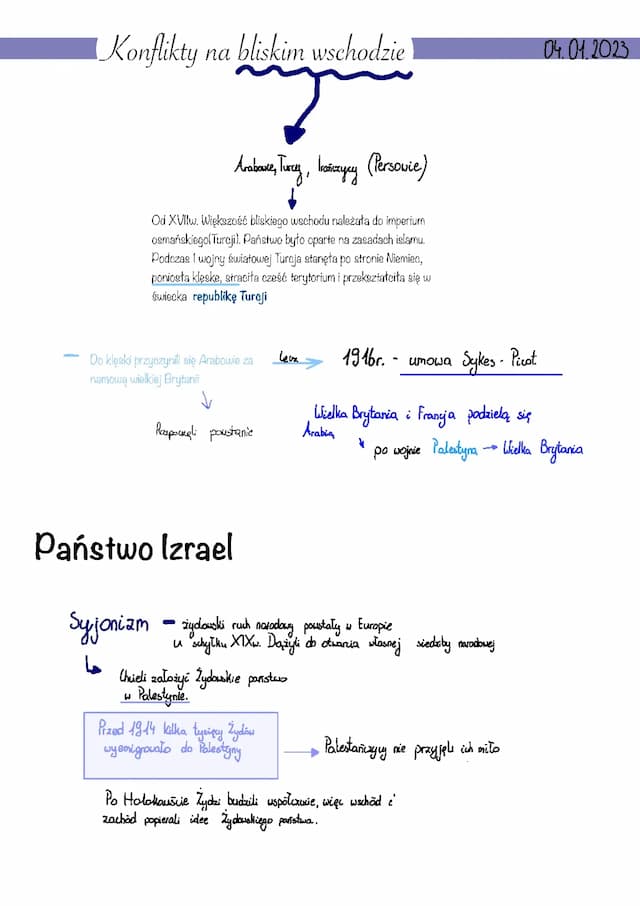 Konflikty na bliskim wschodzie
04.01.2023
Arabowie, Turcy, Irańczycy (Persowie)
Od XVIIw. Większość bliskiego wschodu należała do imperium
osmańskiego(Turcji). Państwo było oparte na zasadach islamu.
Podczas I wojny światowej Turcja stanęła po stronie Niemiec,
poniosła klęskę, straciła cześć terytorium i przekształciła się w
świecka republikę Turcji
Do klęski przyczynili się Arabowie za
namową wielkiej Brytanii
Lecz
1916r. - umowa Sykes - Picot
Rozpoczęli powstanie
Wielka Brytania i Francja podzielą się
Arabią
po wojnie Palestyna → Wielka Brytania
Państwo Izrael
Syjonizm - żydowski ruch narodowy powstały w Europie
u schyłku XIXw. Dążyli do otwarcia własnej siedziby narodowej
Chcieli założyć Żydowskie państwo
w Palestynie.
Przed 1914 kilka tysięcy Żydów
wyemigrowało do Palestyny
Palestańczycy nie przyjęli ich miło
Po Holokauście Żydzi budzili współczucie, więc wschód i
zachód popierali idee Żydowskiego państwa..